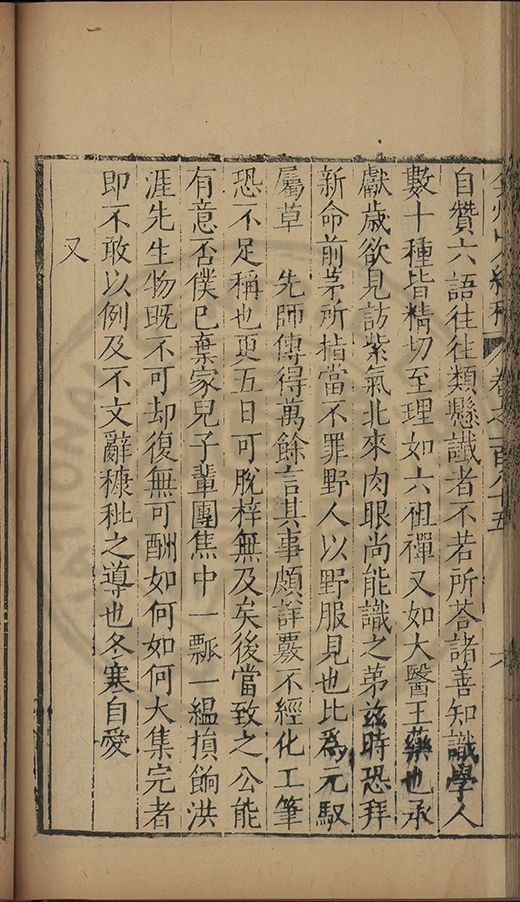 弇州山人續稿 卷之一百八十五 六
自贊六語往往類懸讖者不若所荅諸善知識學人
數十種皆精切至理如六祖禪又如大醫王藥也承
獻歲欲見訪紫氣北來肉眼尚能識之苐兹時恐拜
新命前茅所指當不罪野人以野服見也比爲元馭
屬草 先師傳得萬餘言其事頗詳覈不經化工筆
恐不足稱也更五日可脫梓無及矣後當致之公能
有意否僕已棄家兒子輩團焦中一瓢一縕損餉洪
涯先生物旣不可却復無可酬如何如何大集完者
即不敢以例及不文辭糠秕之導也冬寒自愛
又